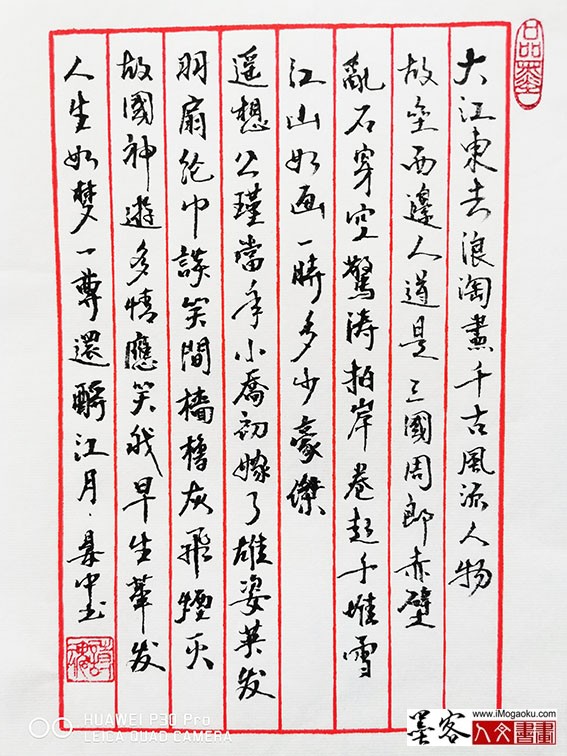 大江東去浪淘盡千古風流人物
故壘西邊人道是三國周郎赤壁
亂石穿空驚涛拍岸卷起千堆雪
江山如画一時多少豪傑
遥想公瑾當年小喬初嫁了雄姿英发
羽扇纶巾談笑間檣櫓灰飛煙灭
故國神遊多情應笑我早生華发
人生如梦一尊還酹江月
HUAWEI P30 Pro
LEICA QUAD CAMERA
墨客
www.iMogaoku.com
人文書画